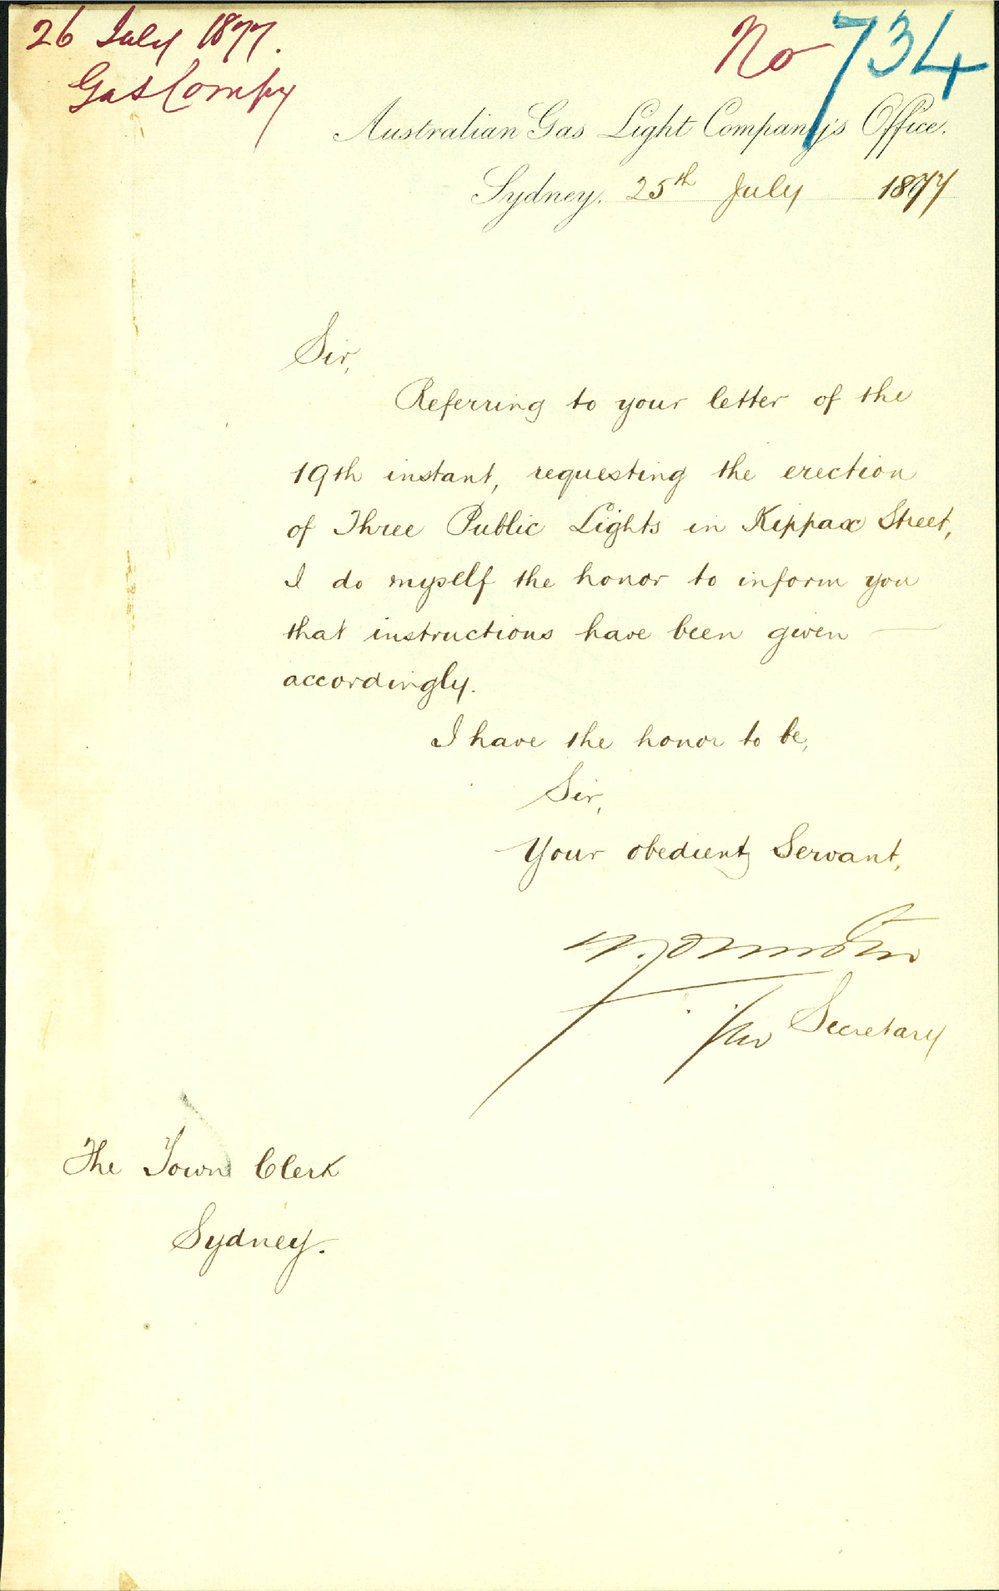 26 July 1877.
Gas Compy
No 734
Australian Gas Light Company's Office.
Sydney, 25th July 1877
Sir,
Referring to your letter of the
19th instant, requesting the erection
of Three Public Lights in Kippax Street,
I do myself the honor to inform you
that instructions have been given —
accordingly.
I have the honor to be,
Sir,
Your obedient Servant,
for Secretary
The Town Clerk
Sydney.